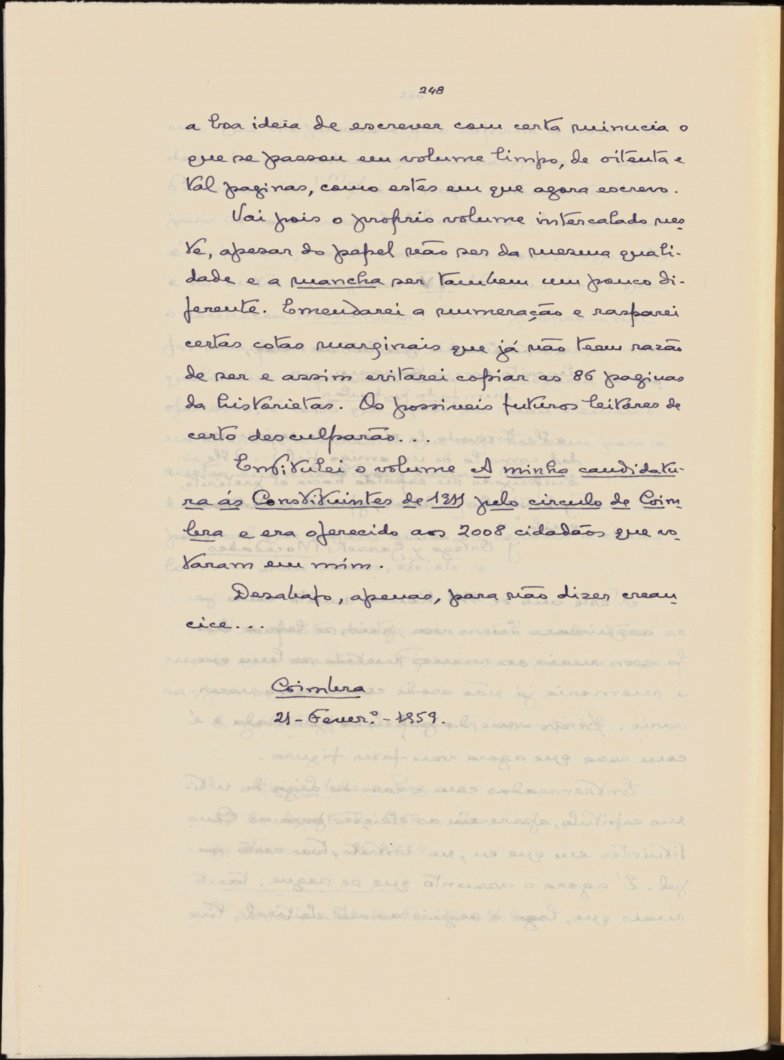 248
a boa ideia de escrever com certa minucia o
que se passou em volume limpo, de oitenta e
tal paginas, como estes em que agora escrevo.
Vai pois o proprio volume intercalado nes-
te, apesar do papel não ser da mesma quali-
dade e a mancha ser tambem um pouco di-
ferente. Emendarei a numeração e rasparei
certas cotas marginais que já não teem razão
de ser e assim evitarei copiar as 86 paginas
da historietas. Os possiveis futuros leitores de
certo desculparão...
Entitulei o volume A minha candidatu-
ra ás Constituintes de 1911 pelo circulo de Coim-
bra e era oferecido aos 2008 cidadãos que vo-
taram em mim.
Desabafo, apenas, para não dizer crean-
cice...
Coimbra
21-Fever.º-1959.